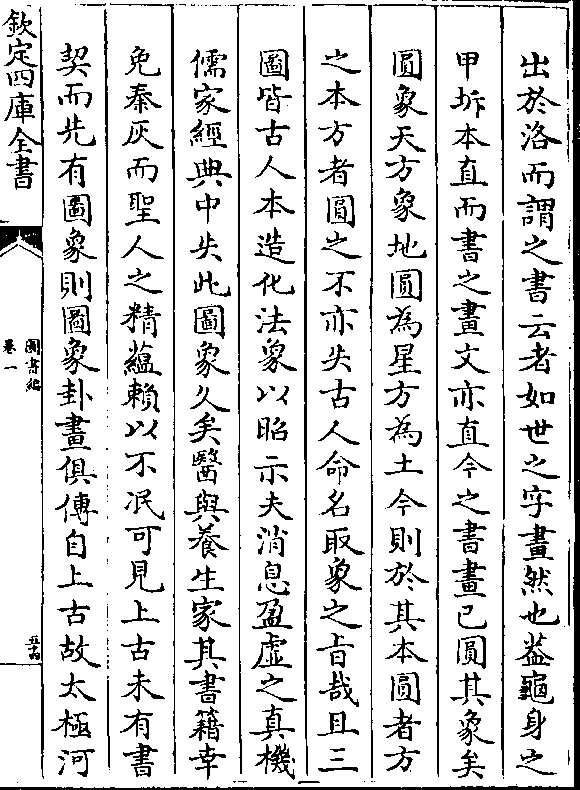 出於洛而謂之書云者如世之字畫然也葢龜身之
甲坼本直而書之畫文亦直今之書畫已圓其象矣
圓象天方象地圓為星方為土今則於其本圓者方
之本方者圓之不亦失古人命名取象之旨哉且三
圖皆古人本造化法象以昭示夫消息盈虛之真機
儒家經典中失此圖象久矣醫與養生家其書籍幸
免秦灰而聖人之精蘊賴以不泯可見上古未有書
契而先有圖象則圖象卦畫俱傳自上古故太極河
欽定四庫全書
圖書編
卷一
五十四